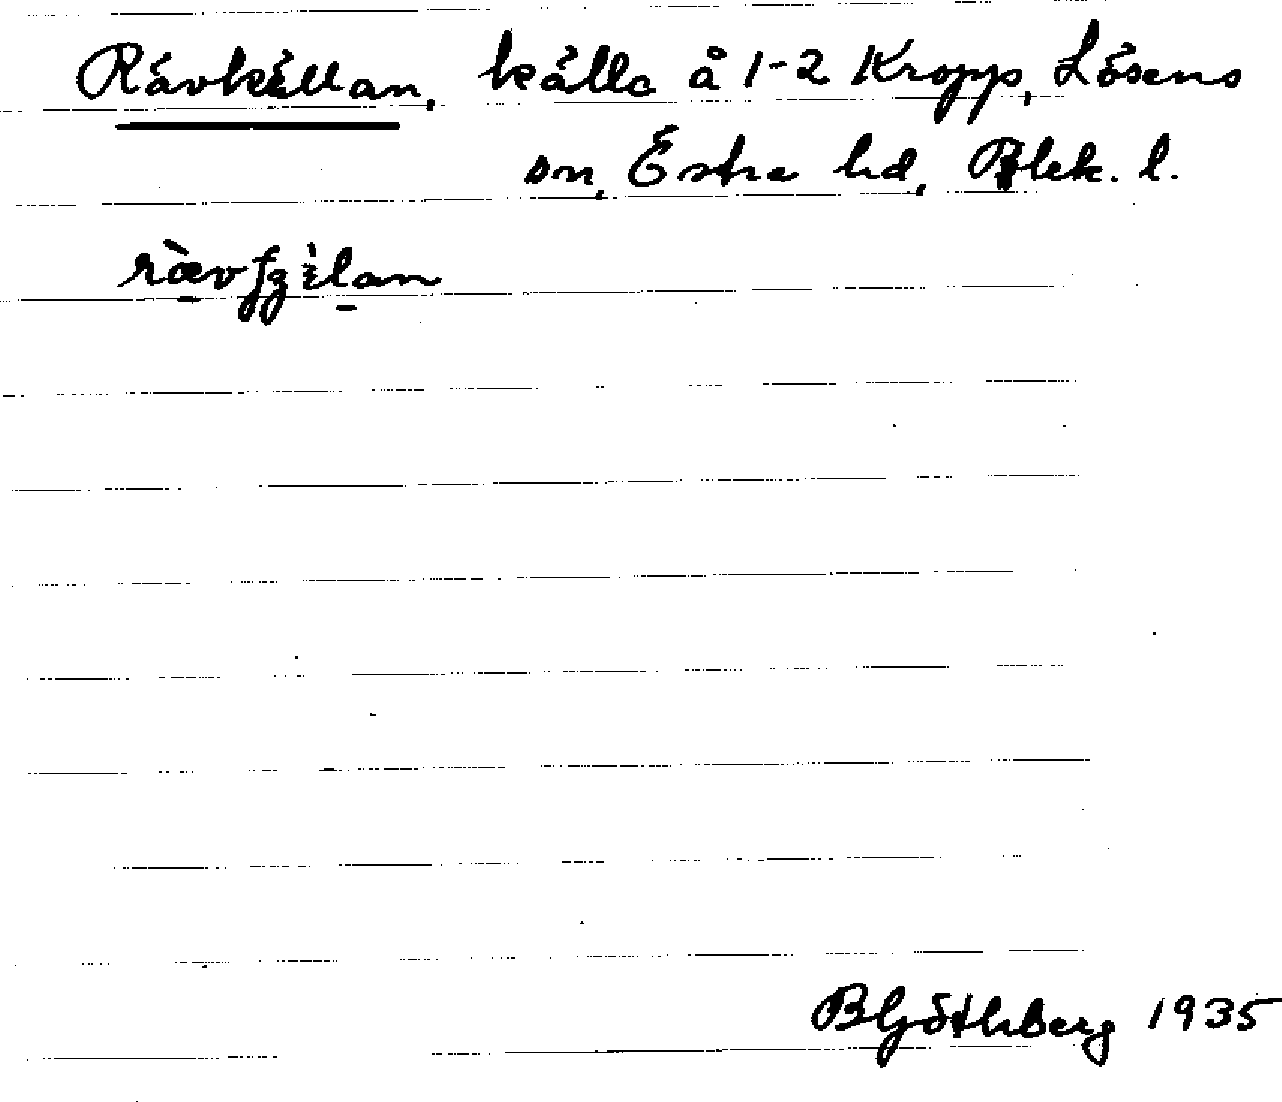 Rävkällan, källa å 1-2 Kropp, Lösens
sn, Östra hd, Blek. l.
BGöthberg 1935